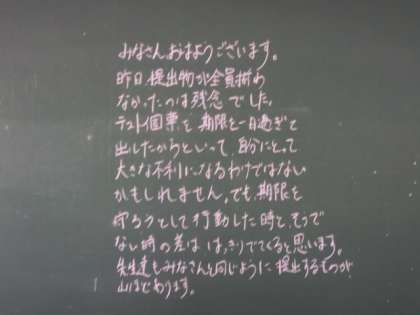 みなさん、おはようございます。
昨日、提出物が全員揃わ
なかったのは残念でした。
テスト個票を期限を一日過ぎて
出したからといって、自分にとって
大きな不利になるわけではない
かもしれません。でも、期限を
守ろうとして行動した時と、そうで
ない時の差は、はっきりでてくると思います。
先生達もみなさんと同じように提出するものが
山ほどあります。